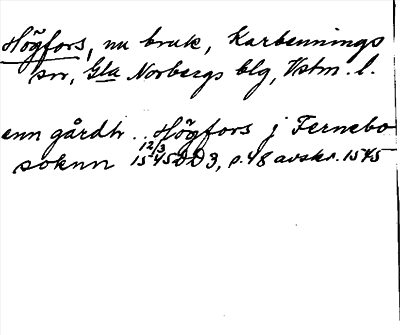 Högfors, nu bruk, Karbennings
sn, Gla Norbergs blg, Vstm. l.
enn gårdh .. Högfors j Fernebo
soknn 15 12/3 45 DD 3, s. 48 avskr. 1545